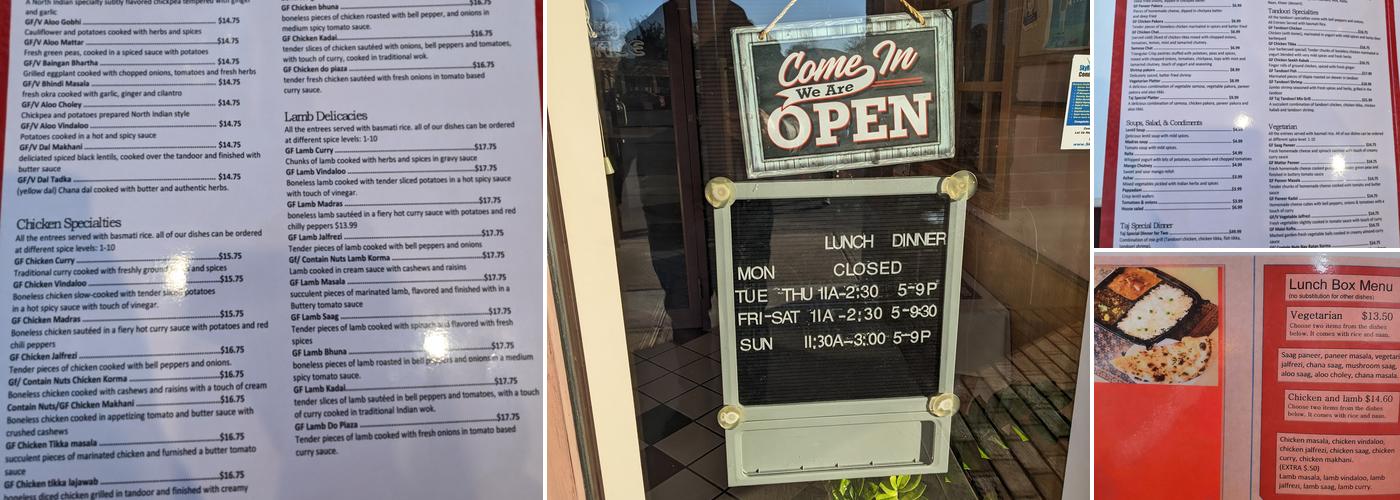 A North Indian specialty subtly flavored chickpea tempered with ginger
and garlic
GF/V Aloo Gobhi $14.75
Cauliflower and potatoes cooked with herbs and spices
GF/V Aloo Mattar $14.75
Fresh green peas, cooked in a spiced sauce with potatoes
GF/V Baingan Bhartha $14.75
Grilled eggplant cooked with chopped onions, tomatoes and fresh herbs
GF/V Bhindi Masala $14.75
fresh okra cooked with garlic, ginger and cilantro
GF/V Aloo Choley $14.75
Chickpea and potatoes prepared North Indian style
GF/V Aloo Vindaloo $14.75
Potatoes cooked in a hot and spicy sauce
GF/V Dal Makhani $14.75
deliciated spiced black lentils, cooked over the tandoor and finished with
butter sauce
GF/V Dal Tadka $14.75
(yellow dal) Chana dal cooked with butter and authentic herbs.
Chicken Specialties
All the entrees served with basmati rice. all of our dishes can be ordered
at different spice levels: 1-10
GF Chicken Curry $15.75
Traditional curry cooked with freshly and spices
GF Chicken Vindaloo $15.75
Boneless chicken slow-cooked with tender sliced potatoes
in a hot spicy sauce with touch of vinegar.
GF Chicken Madras $15.75
Boneless chicken sautéed in a fiery hot curry sauce with potatoes and red
chili peppers
GF Chicken Jalfrezi $16.75
Tender pieces of chicken cooked with bell pepper and onions.
Gf/ Contain Nuts Chicken Korma $16.75
Boneless chicken cooked with cashews and raisins with a touch of cream
Contain Nuts/GF Chicken Makhani $16.75
Boneless chicken cooked in appetizing tomato and butter sauce with
crushed cashews
GF Chicken Tikka masala $16.75
succulent pieces of marinated chicken and furnished a butter tomato
sauce
GF Chicken tikka lajawab $16.75
boneless diced chicken grilled in tandoor and finished with creamy
GF Chicken bhuna $16.75
boneless pieces of chicken roasted with bell pepper, and onions in
medium spicy tomato sauce.
GF Chicken Kadai $16.75
tender slices of chicken sautéed with onions, bell peppers and tomatoes,
with touch of curry, cooked in traditional wok.
GF Chicken do piaza $16.75
tender fresh chicken sautéed with fresh onions in tomato based
curry sauce.
Lamb Delicacies
All the entrees served with basmati rice. all of our dishes can be ordered
at different spice levels: 1-10
GF Lamb Curry $17.75
Chunks of lamb cooked with herbs and spices in gravy sauce
GF Lamb Vindaloo $17.75
Boneless lamb cooked with tender sliced potatoes in a hot spicy sauce
with touch of vinegar.
GF Lamb Madras $17.75
boneless lamb sautéed in a fiery hot curry sauce with potatoes and red
chilly peppers $13.99
GF Lamb Jalfrezi $17.75
Tender pieces of lamb cooked with bell peppers and onions
Gf/ Contain Nuts Lamb Korma $17.75
Lamb cooked in cream sauce with cashews and raisins
GF Lamb Masala $17.75
succulent pieces of marinated lamb, flavored and finished with in a
Buttery tomato sauce
GF Lamb Saag $17.75
Tender pieces of lamb cooked with spinach and flavored with fresh
spices
GF Lamb Bhuna $17.75
boneless pieces of lamb roasted in bell peppers and onions in a medium
spicy tomato sauce.
GF Lamb Kadai $17.75
tender slices of lamb sautéed in bell peppers and tomatoes, with a touch
of curry cooked in traditional Indian wok.
GF Lamb Do Piaza $17.75
Tender pieces of lamb cooked with fresh onions in tomato based
curry sauce.
Come In
We Are
OPEN
LUNCH DINNER
MON CLOSED
TUE -THU 11A-2:30 5-9P
FRI-SAT 11A -2:30 5-9:30
SUN 11:30A-3:00 5-9P
Soups, Salad, & Condiments
Lentil Soup
Delicious lentil soup with mild spices.
Madras soup $4.99
Tomato soup with mild spices.
Raita $4.99
Whipped yogurt with bits of potatoes, cucumbers and chopped tomatoes
Mango Chutney $4.99
Sweet and sour mango relish
Achar $3.99
Mixed vegetables pickled with Indian herbs and spices
Pappadam $3.99
Crisp lentil wafers
Tomatoes & onions $3.99
House salad $6.99
Taj Special Dinner
Taj Special Dinner for Two
Tandoori Specialties
Vegetarian
GF Saag Paneer
GF Matter Paneer
GF Paneer Masala
GF Paneer Kadai
GF Malai Kofta
Lunch Box Menu
(no substitution for other dishes)
Vegetarian $13.50
Choose two items from the dishes
below. It comes with rice and naan.
Saag paneer, paneer masala, vegetar
jalfrezi, chana saag, mushroom saag,
aloo saag, aloo choley, chana masala.
Chicken and lamb $14.60
Choose two items from the dishes
below. It comes with rice and naan.
Chicken masala, chicken vindaloo,
chicken jalfrezi, chicken saag, chicken
curry, chicken makhani.
(EXTRA $.50)
Lamb masala, lamb vindaloo, lamb
jalfrezi, lamb saag, lamb curry.